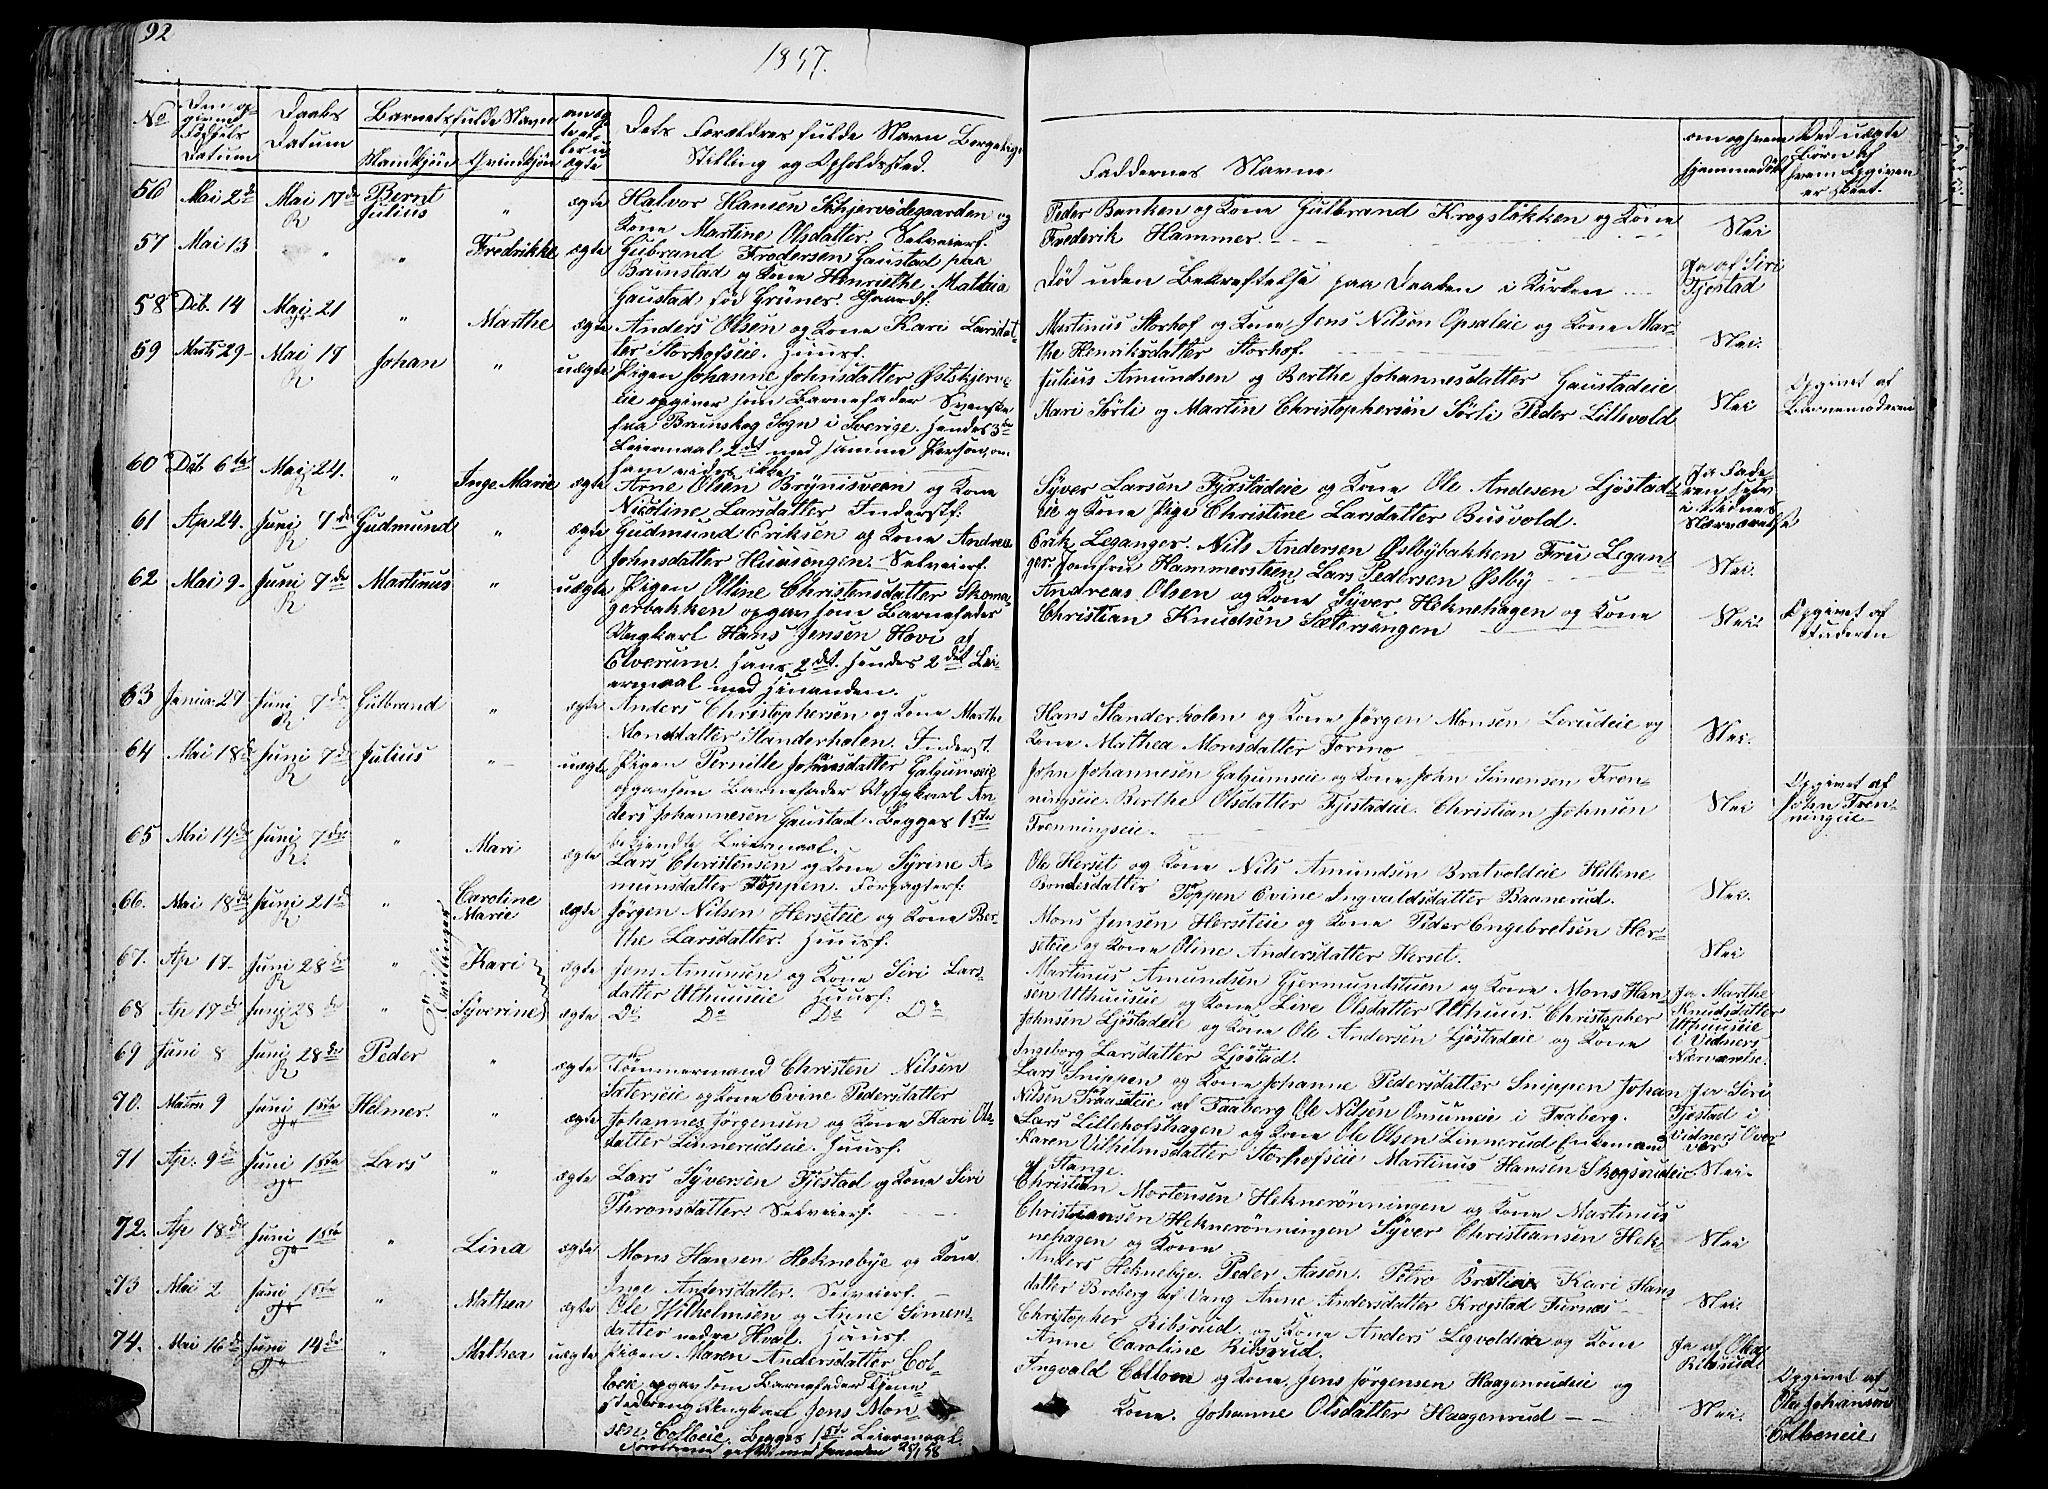 92
1857.
No
Den op-
givne
Fødsels
Datum
Daabs
Datum
Barnets fulde Navn
Mandkjøn
Qvindkjøn
om æg-
te el-
ler u-
ægte
Dets Forældres fulde Navn Borgerlige
Stilling og Opholdssted.
Faddernes Navne
om og hvem
hjemmedøbt
Ved uægte
Børn af
hvem Opgiven
er skeet.
56 Mai 2de Mai 17de Bernt Julius " ægte Halvor Hansen Skhjervødegaarden og
Kone Martine Olsdatter. Selveierf.
Peder Banken og Kone Gulbrand Krogsløkken og Kone
Frederik Hammer.
Nei
57 Mai 13 " " Fredrikke ægte Gubrand Frodersen Gaustad paa
Brunstad og Kone Henriethe Mathia
Gaustad, fød Grüner. Gaardf.
Død uden Bekræftelse paa Daaben i Kirken
Ja af Siri
Fjestad
58 Deb. 14 Mai 21 " Marthe ægte Anders Olsen og Kone Kari Larsdat-
ter Storhofseie. Huusf.
Martinus Storhof og Kone Jens Nilsen Opsaleie og Kone Mar-
the Henriksdatter Storhof.
Nei.
59 Marts 29 Mai 17 Johan " uægte Pigen Johanne Johnsdatter Østskjerve-
eie opgiver som Barnefader Svenske
fra Brunskog Sogn i Sverige. Hendes 3die
Leiermaal 2det med samme Person, om
ham vides ikke.
Julius Amundsen og Berthe Johannesdatter Gaustadeie
Mari Sørli og Martin Christophersen Sørli Peder Lillevold
Nei
Opgivet af
Barnemoderen
60 Deb 6te Mai 24. " Inge Marie ægte Arne Olsen Brynisveen og Kone
Nicoline Larsdatter Inderstf.
Syver Larsen Fjæstadeie og Kone Ole Andesen Ljøstad-
eie og Kone Pige Christine Larsdatter Busvold.
Ja Fade
ren selv
i Vidnes
Nærværelse
61 Ap 24. Juni 7de Gudmund " ægte Gudmund Eriksen og Kone Andrea
Johnsdatter Huusengen. Selveierf.
Erik Leganger. Nils Andersen Østbybakken Fru Legan-
ger. Jomfru Hammersteen Lars Pedersen Østby
Nei.
62 Mai 9 Juni 7de Martinus " uægte Pigen Olline Christensdatter Skoma-
gerbakken opgav som Barnefader
Ungkarl Hans Jensen Hovi af
Elverum. Hans 2det. Hendes 2det Lei-
ermaal med hinanden.
Andreas Olsen og Kone Syver Heknehagen og Kone
Christian Knudsen Sætersengen
Nei
Opgivet af
Faderen
63 Januar 27 Juni 7de Gulbrand " ægte Anders Christophersen og Kone Marthe
Monsdatter Standerholen. Inderst.
Hans Standerholen og Kone Jørgen Monsen Lerudeie og
Kone Mathea Monsdatter Formo
Nei.
64 Mai 18de Juni 7de Julius " uægte Pigen Pernelle Johansdatter Galgumseie
opgav som Barnefader Ungkarl An-
ders Johannesen Gaustad. Begges 1ste
bekjendte Leiermaal.
John Johannesen Galgumseie og Kone John Simensen Fren-
ningseie. Berthe Olsdatter Fjestadeie. Christian Johnsen
Frenningseie.
Nei
Opgivet af
John Fren-
ningeie
65 Mai 14de Juni 7de " Mari ægte Lars Christensen og Kone Syrine A-
mundsdatter Toppen. Forpagterf.
Ole Herset og Kone Nils Amundsen Bratvoldeie Hellene
Bondesdatter Toppen Evine Ingvaldsdatter Baanerud.
Nei.
66. Mai 18de Juni 21de " Caroline Marie ægte Jørgen Nilsen Herseteie og Kone Ber-
the Larsdatter. Huusf.
Mons Jensen Herseteie og Kone Peder Engebretsen Her-
seteie og Kone Oline Andersdatter Herset.
Nei
Tvillinger
67. Ap 17. Juni 28de " Kari ægte Jens Amunsen og Kone Siri Lars-
datter Uthuuseie Huusf.
Martinus Amundsen Gjermundstuen og Kone Mons Han-
sen Uthuuseie og Kone Live Olsdatter Uthuus. Christopher
68 Ap 17de Juni 28de " Syverine ægte Do Do Do Do
Johnsen Ljøstadeie og Kone Ole Andersen Ljøstadeie og Kone
Ingeborg Larsdatter Ljøstad.
Ja Marthe
Knudsdatter
Uthuuseie
i Vidners
Nærværelse.
69 Juni 8 Juni 28de Peder " ægte Tømmermand Christen Nilsen
Saterseie og Kone Evine Pedersdatter
Lars Snippen og Kone Johanne Pedersdatter Snippen Johan
Nilsen Fraaseteie af Faaberg Ole Nilsen Onsumeie i Faaberg.
Ja Siri
Fjestad i
Vidners Over
vær
70. Marts 9 Juni 1ste Helmer. " ægte Johannes Jørgensen og Kone Kari Ols-
datter Linnerudseie. Huusf.
Lars Lillehofshagen og Kone Ole Olsen Linnerud Enkemand
Karen Vilhelmsdatter Storhofseie Martinus Hansen Skogsrudeie
af Stange.
Nei.
71 Ap. 9de Juni 1ste Lars " ægte Lars Syversen Fjestad og Kone Siri
Thronsdatter. Selveierf.
Christian Mortensen Heknerønningen og Kone Martinus
Christiansen Heknerønningen Syver Christiansen Hek-
nehagen og Kone
Nei
72. Ap 18de Juni 1ste " Lina ægte Mons Hansen Heknebye og Kone
Inge Andersdatter. Selveierf.
Anders Heknebye. Peder Aasen. Petro Brattlien Kari Hans-
datter Broberg af Vang Anne Andersdatter Krogstad Furnæs
Nei.
73 Mai 2 Juni 1ste " Mathea ægte Ole Wilhelmsen og Anne Simens-
datter nedre Hval. Huusf.
Christopher Ribsrud og Kone Anders Ligvoldseie og Kone
Anne Caroline Ribsrud.
Ja af Olea
Ribsrud
74. Mai 16de Juni 14de " Mathea uægte Pigen Maren Andersdatter Col-
loeie opgav som Barnefader Tjene-
stedreng Ungkarl Jens Mon-
sen Colloeie. Begges 1ste Leiermaal.
Forældrene giftede med hinanden 25/1 58
Ingvald Colloen og Kone Jens Jørgensen Haagenrudeie og
Kone. Johanne Olsdatter Haagenrud
Nei.
Opgivet af
Ole Johansen
Colloneie.